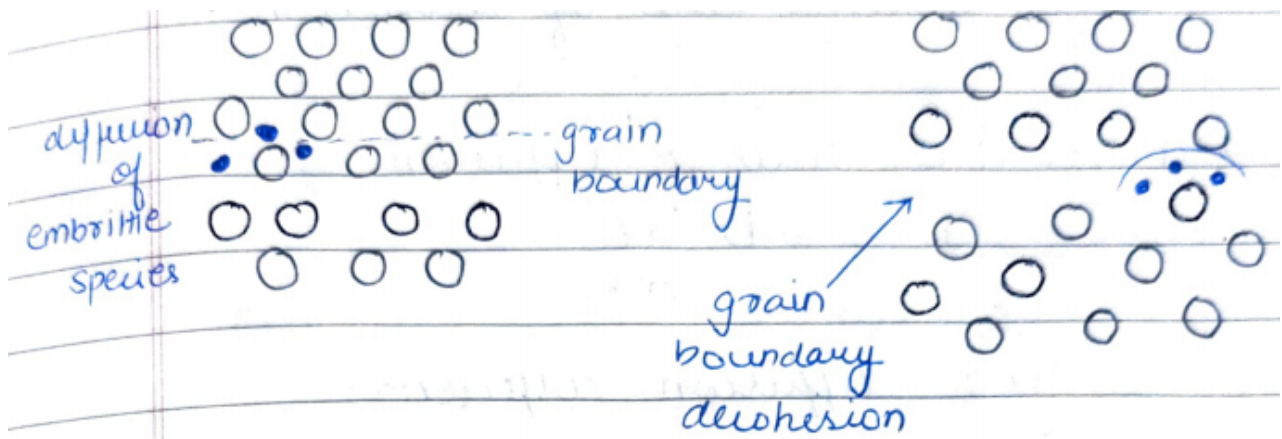 diffusion
of
embrittle
species
grain
boundary
grain
boundary
decohesion